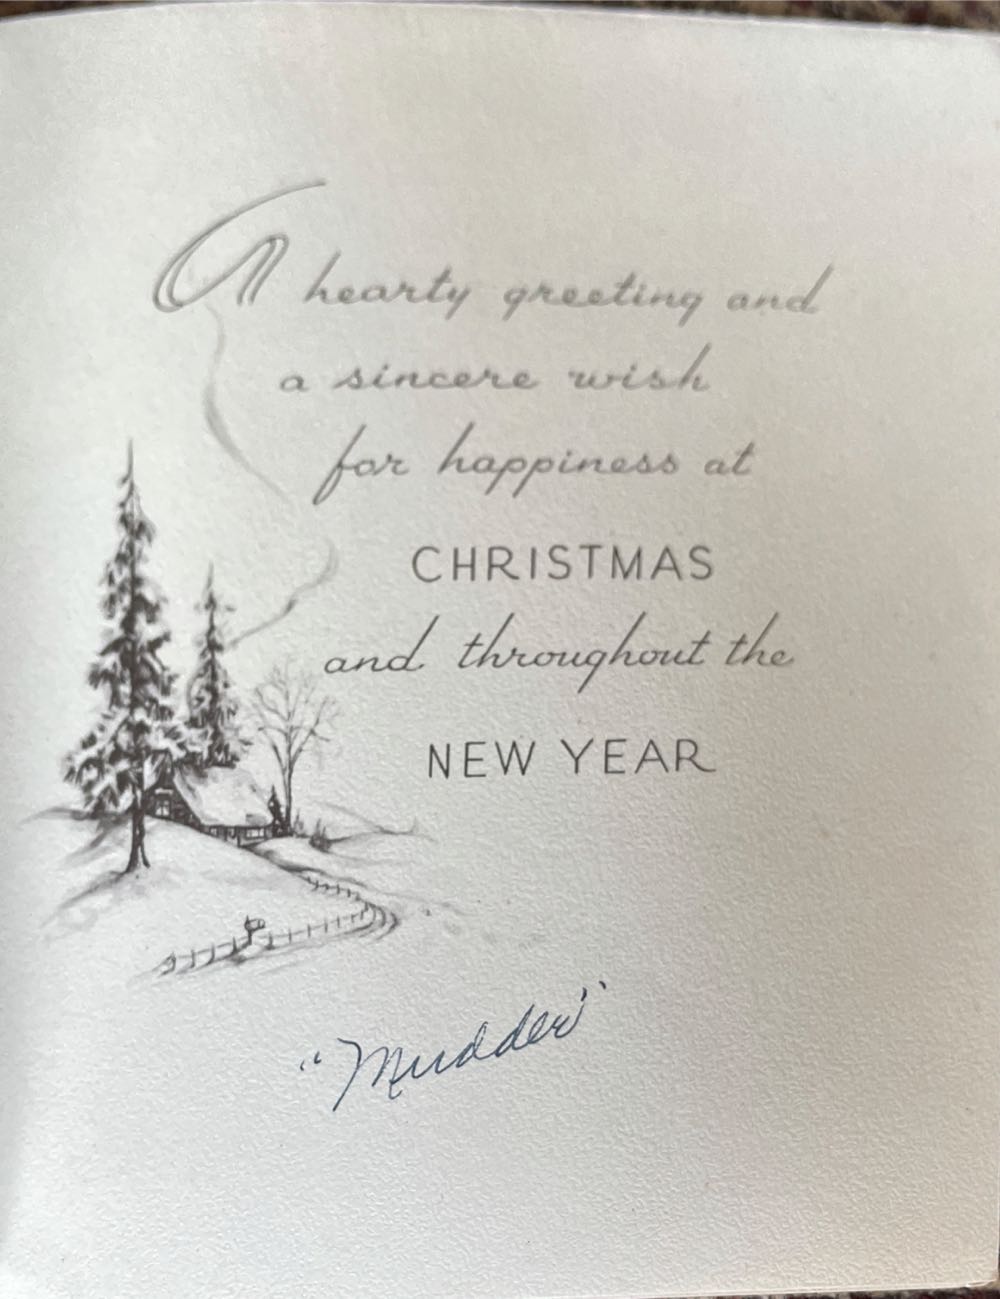 A hearty greeting and
a sincere wish
for happiness at
CHRISTMAS
and throughout the
NEW YEAR
"Mudder"